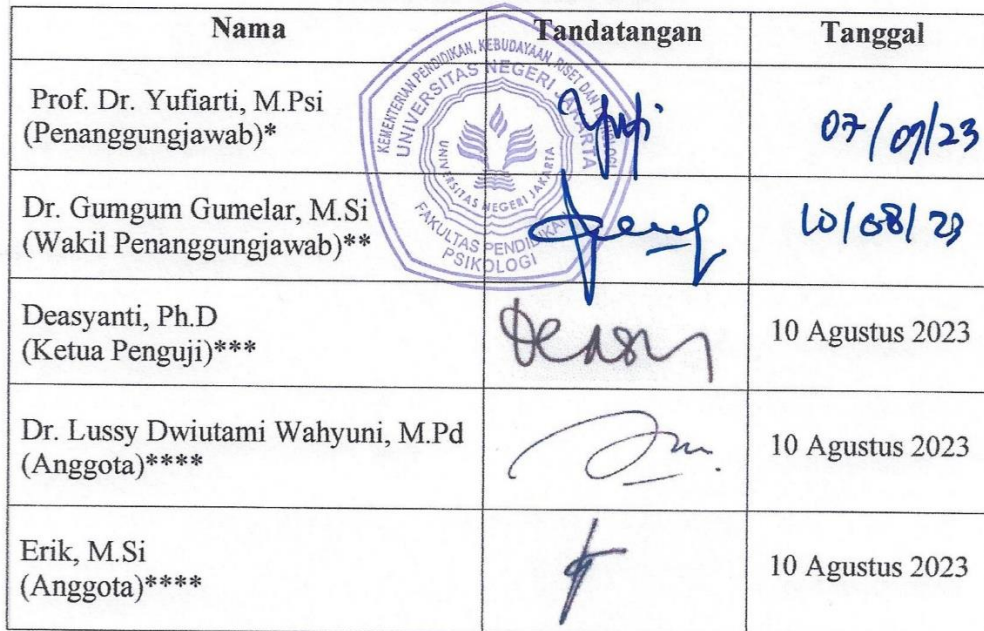 Nama Tandatangan Tanggal
Prof. Dr. Yufiarti, M.Psi
(Penanggungjawab)*
07/09/23
Dr. Gumgum Gumelar, M.Si
(Wakil Penanggungjawab)**
10/08/23
Deasyanti, Ph.D
(Ketua Penguji)***
10 Agustus 2023
Dr. Lussy Dwiutami Wahyuni, M.Pd
(Anggota)****
10 Agustus 2023
Erik, M.Si
(Anggota)****
10 Agustus 2023
KEMENTERIAN PENDIDIKAN, KEBUDAYAAN, RISET DAN
UNIVERSITAS NEGERI JAKARTA
UNIVERSITAS NEGERI JAKARTA
FAKULTAS PENDIDIKAN
PSIKOLOGI